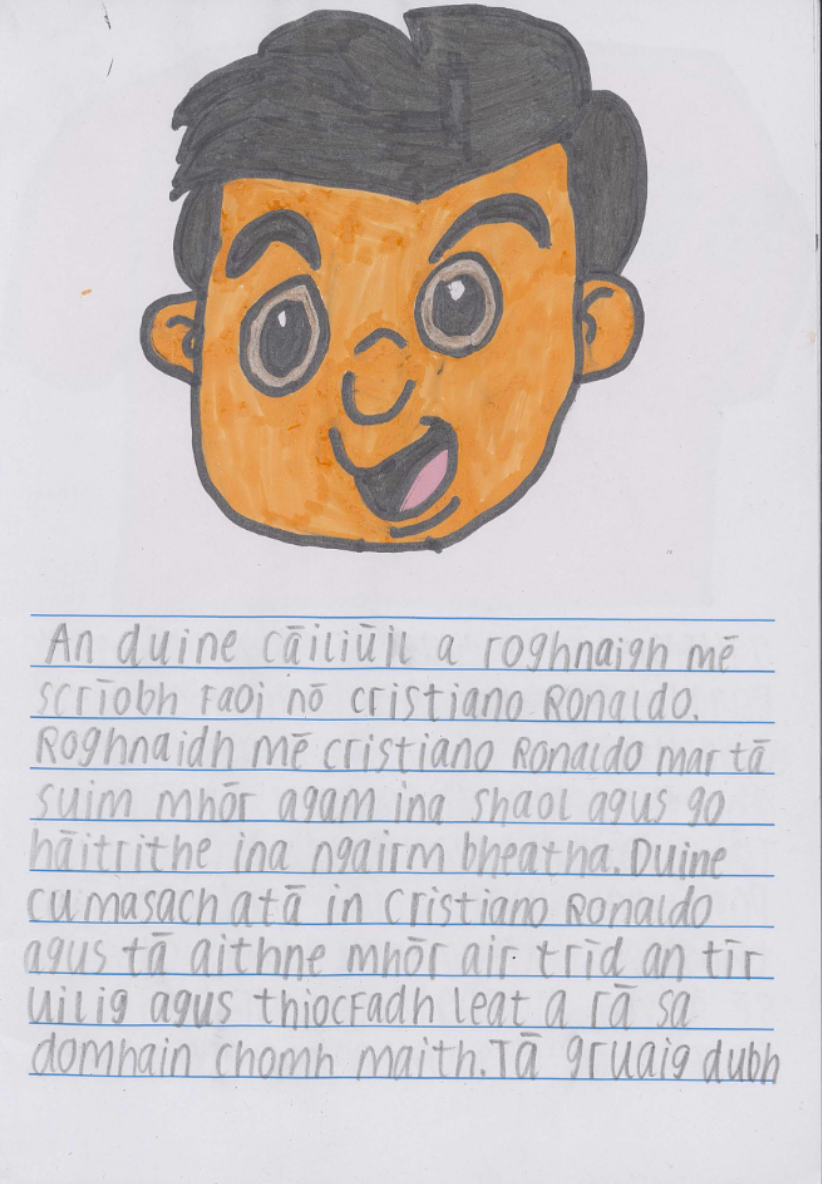 An duine cáiliúil a roghnaigh mé
scríobh faoi nó cristiano Ronaldo.
Roghnaidh mé cristiano Ronaldo mar tá
suim mhór agam ina shaol agus go
háitrithe ina ngairm bheatha. Duine
cumasach atá in Cristiano Ronaldo
agus tá aithne mhór air tríd an tír
uilig agus thiocfadh leat a rá sa
domhain chomh maith. Tá gruaig dubh